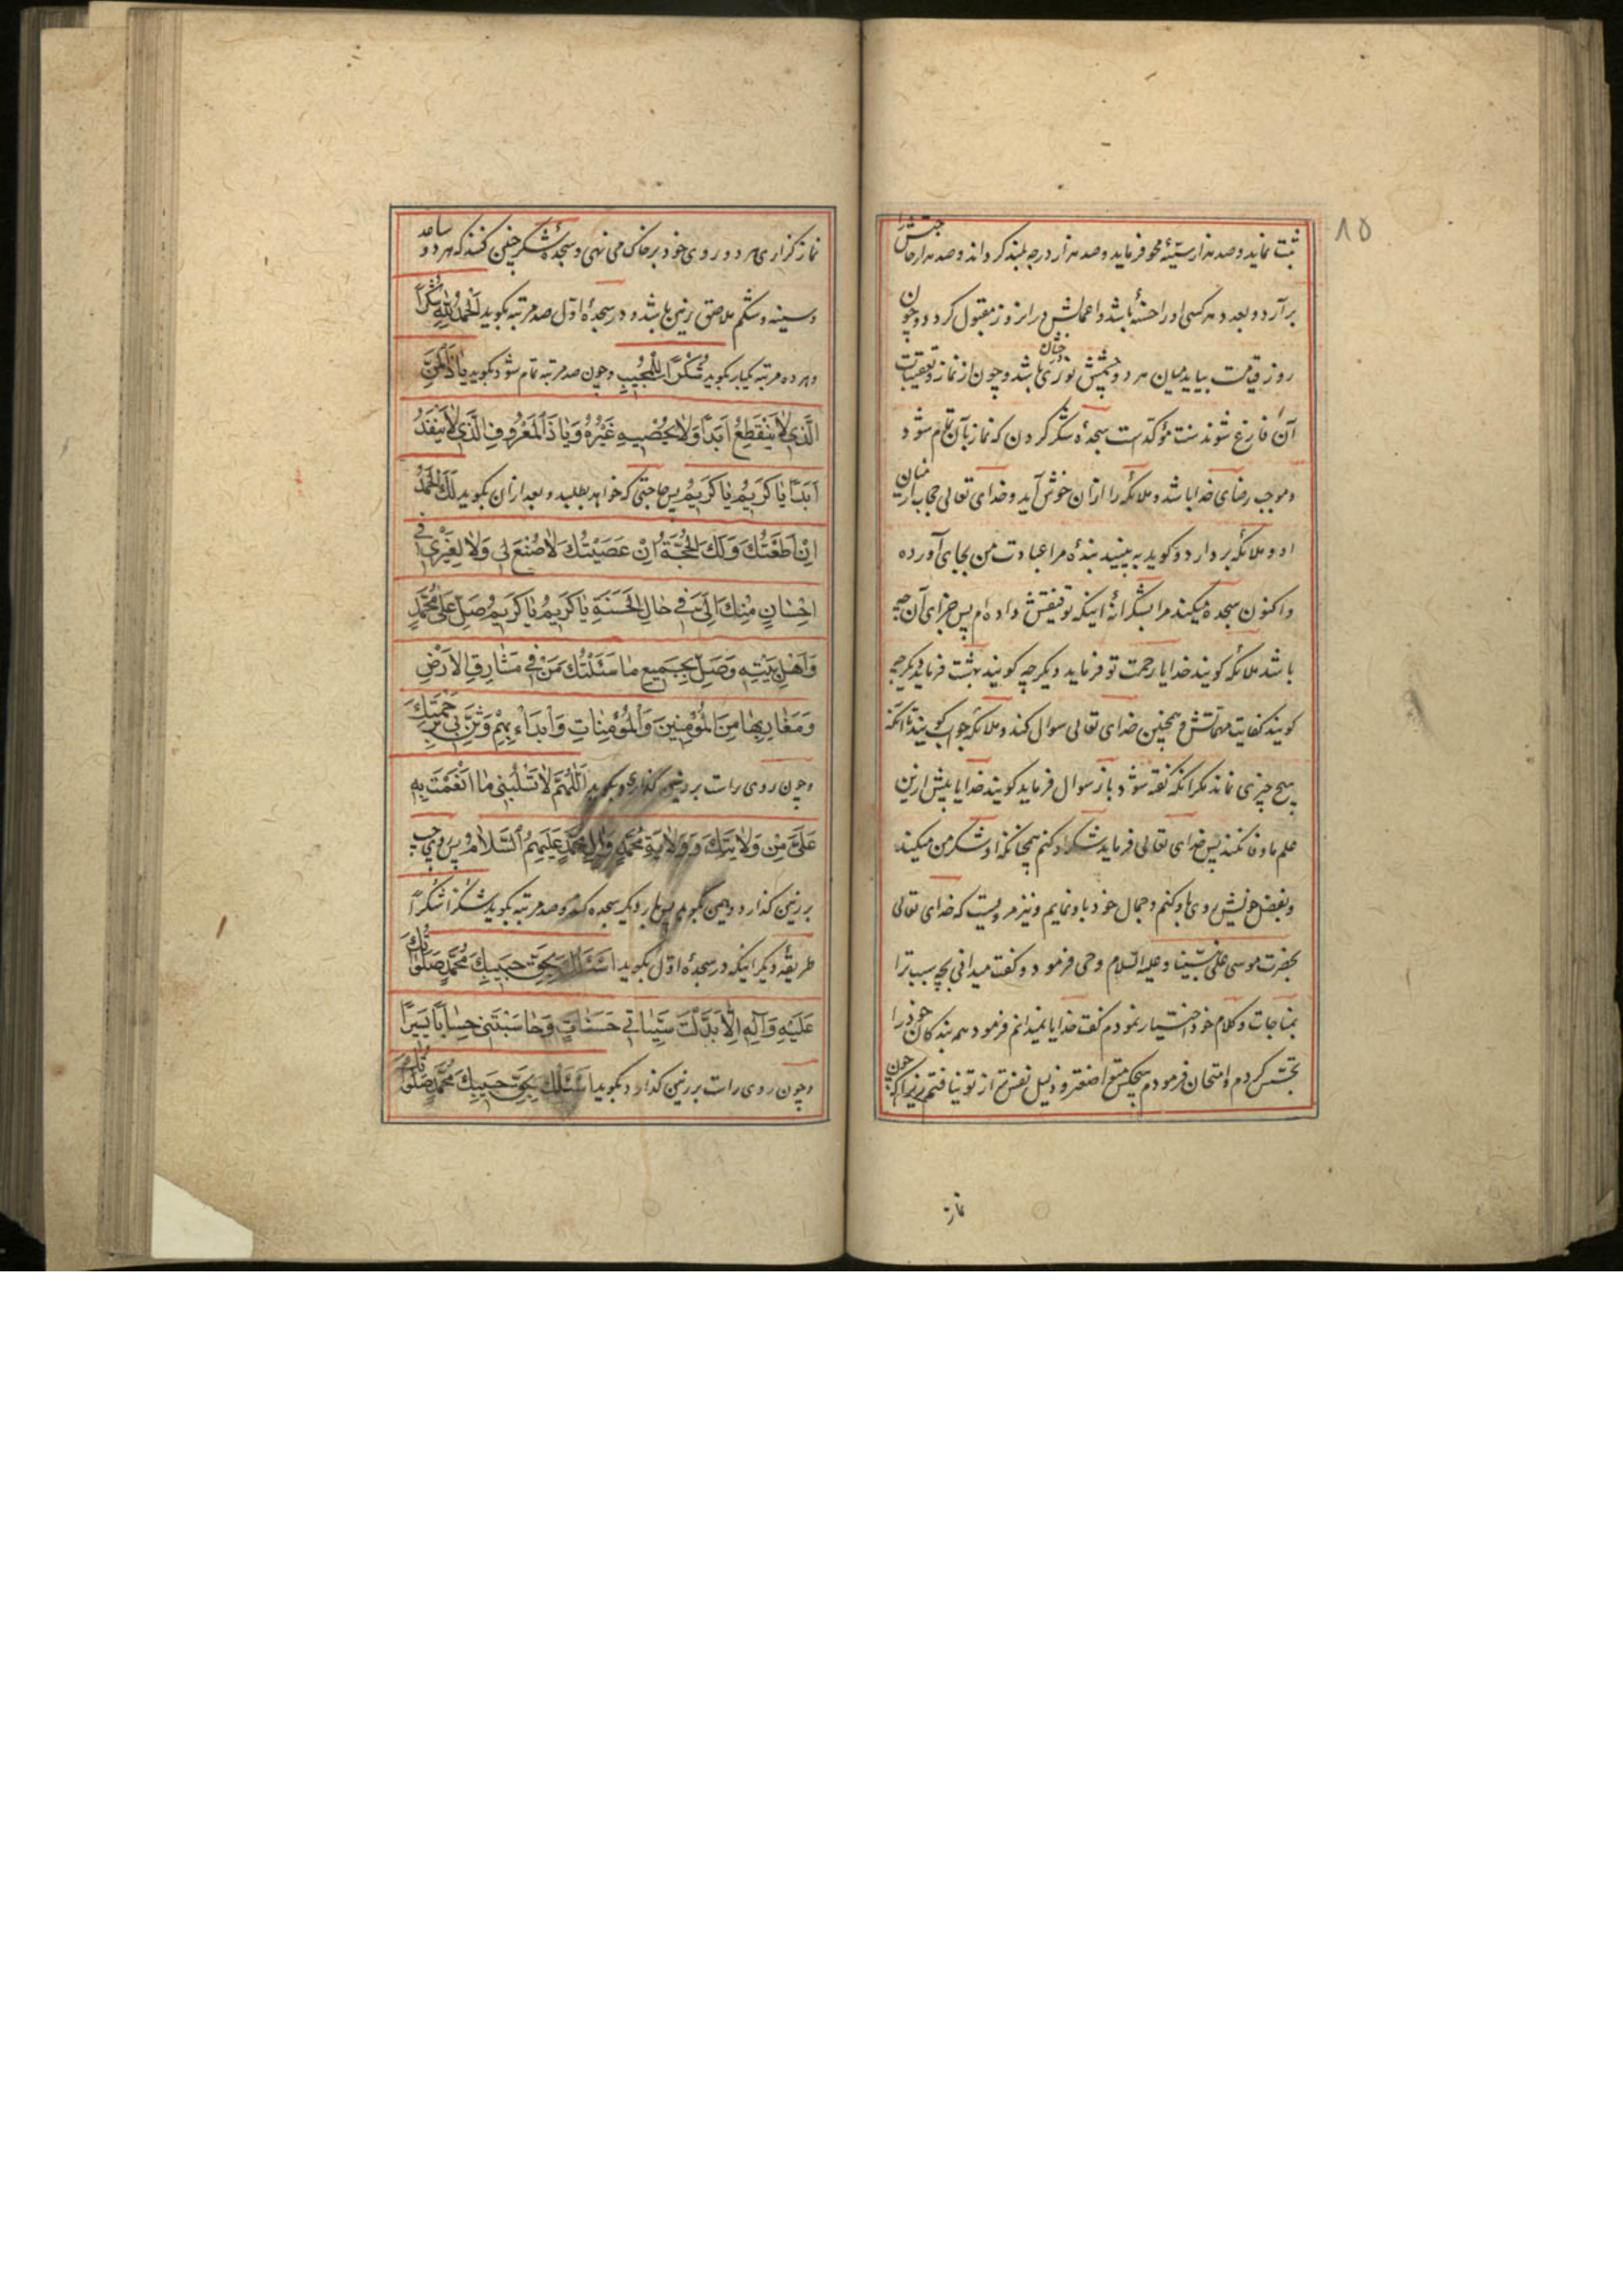 ٨٥
ثبت نماید و صد هزار سیّئه محو فرماید و صد هزار درجه بلند کرداند و صد هزار حاجتش را
برآرد و بعدد هر کسی او را حسنهٔ باشد و اعمالش در انروز مقبول کردد و چون
روز قیامت بیاید میان هر دو چشمش نوری باشد و چون از نماز و تعقیبات
آن فارغ شوند سنت مؤکدست سجدهٔ شکر کردن که نماز بآن تمام شود
و موجب رضای خدا باشد و ملائکه را ازان خوش آید و خدای تعالی حجاب از میان
او و ملائکه بردارد و کوید به بینید بندهٔ مرا عبادت من بجای آورده
و اکنون سجده میکند مرا بشکرانهٔ اینکه توفیقش داده‌ام پس جزای آن چه
باشد ملائکه کویند خدایا رحمت تو فرماید دیکر چه کویند بهشت فرماید دیکر چه
کویند کفایت مهماتش و همچنین خدای تعالی سوال کند و ملائکه جواب کویند تا آنکه
هیچ چیزی نماند مکر انکه کفته شود باز سوال فرماید کویند خدایا بیش ازین
علم ما وفا نکند پس خدای تعالی فرماید شکر او کنم همچنانکه او شکر من میکند
و بفضل خویش روی باو کنم و جمال خود باو نمایم و نیز مرویست که خدای تعالی
بحضرت موسی علی نبیّنا و علیه السّلام وحی فرمود و کفت میدانی بچه سبب ترا
بمناجات و کلام خود اختیار نمودم کفت خدایا نمیدانم فرمود همه بندکان خود را
تجسّس کردم و امتحان فرمودم هیچکس متواضعتر و ذلیل نفس‌تر از تو نیافتم زیرا که چون
نماز
نماز کزاری هر دو روی خود بر خاک می نهی و سجدهٔ شکر چنین کنند که هر دو ساعد
و سینه و شکم ملاصق زمین باشد و در سجدهٔ اوّل صد مرتبه بکوید اَلْحَمْدُ لِلّٰهِ شُكْراً
و هر ده مرتبه یکبار بکوید شُكْراً لِلْمُجيبِ و چون صد مرتبه تمام شود بکوید یٰا ذَا الْمَنِّ
الَّذي لاٰ يَنْقَطِعُ اَبَداً وَلاٰ يُحْصٖيهِ غَيْرُهُ وَيٰا ذَا الْمَعْرُوفِ الَّذي لاٰ يَنْفَدُ
اَبَداً يٰا كَرٖيمُ يٰا كَرٖيمُ پس حاجتی که خواهد بطلبد و بعد ازان بکوید لَكَ الْحَمْدُ
اِنْ اَطَعْتُكَ وَلَكَ الْحُجَّةُ اِنْ عَصَيْتُكَ لاٰ صُنْعَ لي وَلاٰ لِغَيْري في
اِحْسٰانٍ مِنْكَ اِلَيَّ في حٰالِ الْحَسَنَةِ يٰا كَرٖيمُ يٰا كَرٖيمُ صَلِّ عَلىٰ مُحَمَّدٍ
وَاَهْلِ بَيْتِهِ وَصَلِّ بِجَمٖيعِ مٰا سَئَلْتُكَ مَنْ في مَشٰارِقِ الْاَرْضِ
وَمَغٰارِبِهٰا مِنَ الْمُؤْمِنينَ وَالْمُؤْمِنٰاتِ وَابْدَاْ بِهِمْ وَثَنِّ بي بِرَحْمَتِكَ
و چون روی راست بر زمین کذارد بکوید اَللّٰهُمَّ لاٰ تَسْلُبْني مٰا اَنْعَمْتَ بِهِ
عَلَيَّ مِنْ وَلاٰيَتِكَ وَوِلاٰيَةِ مُحَمَّدٍ وَاٰلِ مُحَمَّدٍ عَلَيْهِمُ السَّلاٰمُ پس روی چپ
بر زمین کذارد و همین بکوید پس بار دیکر سجده کند و صد مرتبه بکوید شُكْراً شُكْراً
طریقهٔ دیکر اینکه در سجدهٔ اوّل بکوید اَسْئَلُكَ بِحَقِّ حَبيبِكَ مُحَمَّدٍ صَلَوٰاتُكَ
عَلَيْهِ وَآلِهِ اِلّاٰ بَدَّلْتَ سَيِّئٰاتي حَسَنٰاتٍ وَحٰاسَبْتَني حِسٰاباً يَسيراً
و چون روی راست بر زمین کذارد بکوید اَسْئَلُكَ بِحَقِّ حَبيبِكَ مُحَمَّدٍ صَلَوٰاتُكَ